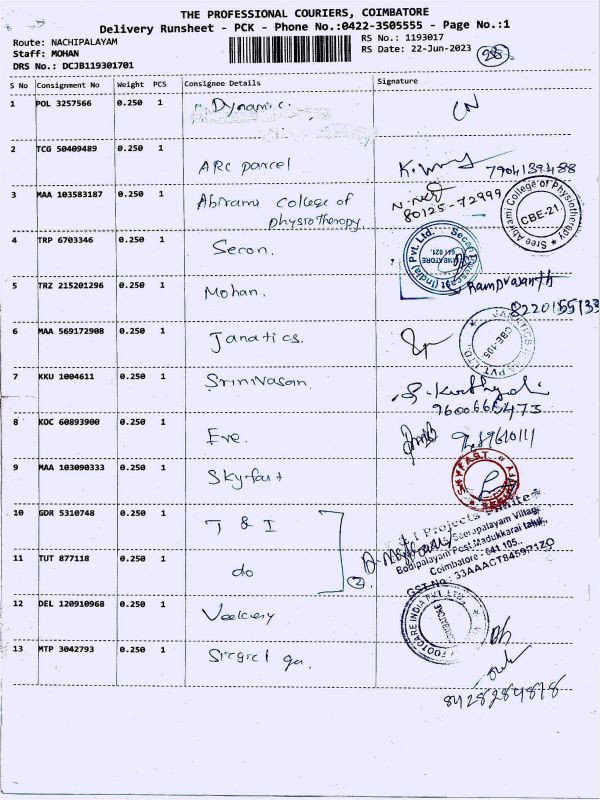 THE PROFESSIONAL COURIERS, COIMBATORE
Delivery Runsheet - PCK - Phone No.:0422-3505555 - Page No.:1
Route: NACHIPALAYAM
Staff: MOHAN
DRS No.: DCJB119301701
RS No.: 1193017
RS Date: 22-Jun-2023
28
S No Consignment No Weight PCS Consignee Details Signature
1 POL 3257566 0.250 1 Dynamic.
2 TCG 50409489 0.250 1 ARC parcel 7904139488
3 MAA 103583187 0.250 1 Abirami College of physiotherapy. 80125-72999
Sree Abirami College of Physiotherapy
CBE-21
4 TRP 6703346 0.250 1 Secon.
5 TRZ 215201296 0.250 1 Mohan. Ramprasanth
8220155133
6 MAA 569172908 0.250 1 Janatics.
CBE-105
7 KKU 1004611 0.250 1 Srinivasan.
9600666473
8 KOC 60893900 0.250 1 Eve
9 MAA 103090333 0.250 1 Skyfast
SKYFAST
10 GDR 5310748 0.250 1 T & I
Projects Limited
Seerapalayam Village
Bodipalayam Post, Madukkarai taluk,
Coimbatore - 641 105.
11 TUT 877118 0.250 1 do 2
GST NO
12 DEL 120910968 0.250 1
FOOTCARE INDIA PVT. LTD.
COIMBATORE
13 MTP 3042793 0.250 1
8428284878